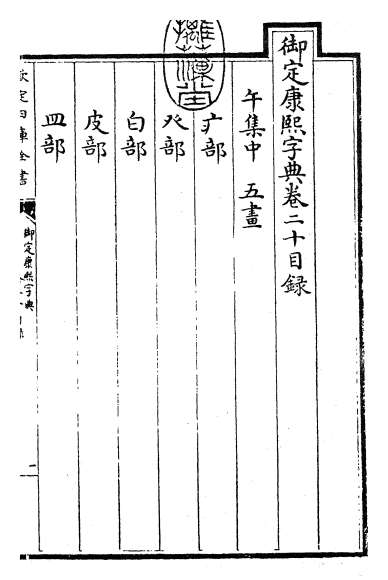 御定康熙字典卷二十目録
午集中 五畫
疒部
癶部
白部
皮部
皿部
欽定四庫全書
御定康熙字典